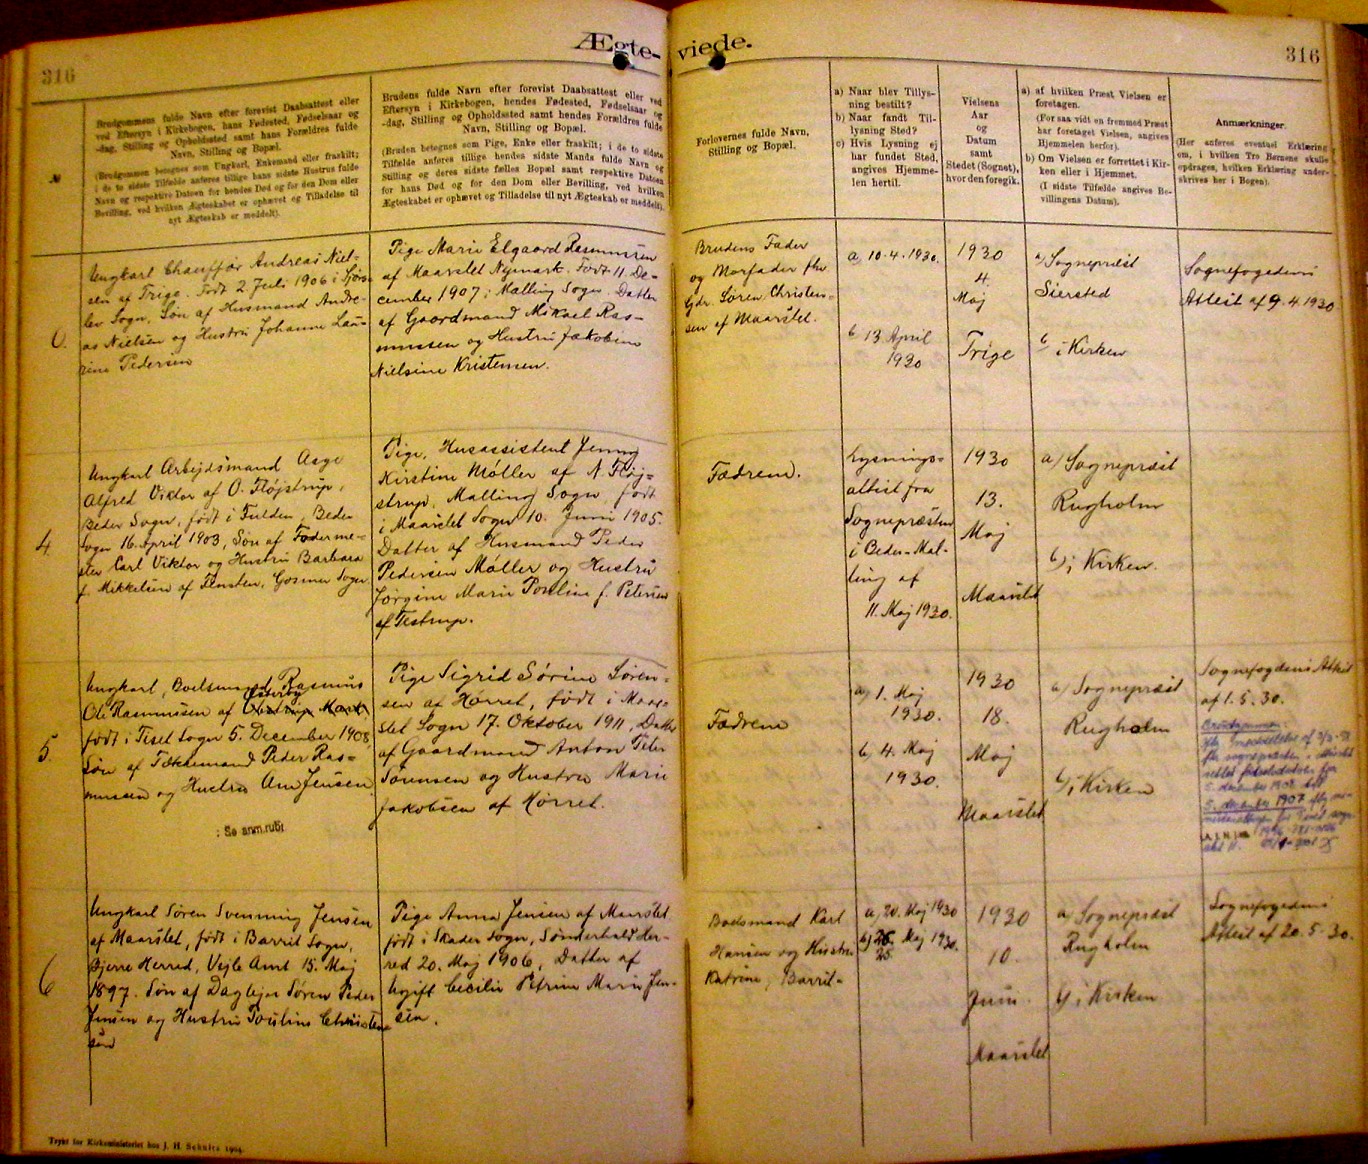 316
Ægte-
viede.
316
№
Brudgommens fulde Navn efter forevist Daabsattest eller
ved Eftersyn i Kirkebogen, hans Fødested, Fødselsaar og
-dag, Stilling og Opholdssted samt hans Forældres fulde
Navn, Stilling og Bopæl.
(Brudgommen betegnes som Ungkarl, Enkemand eller fraskilt;
i de to sidste Tilfælde anføres tillige hans sidste Hustrus fulde
Navn og respektive Datoen for hendes Død og for den Dom eller
Bevilling, ved hvilken Ægteskabet er ophævet og Tilladelse til
nyt Ægteskab er meddelt).
Brudens fulde Navn efter forevist Daabsattest eller ved
Eftersyn i Kirkebogen, hendes Fødested, Fødselsaar og
-dag, Stilling og Opholdssted samt hendes Forældres fulde
Navn, Stilling og Bopæl.
(Bruden betegnes som Pige, Enke eller fraskilt; i de to sidste
Tilfælde anføres tillige hendes sidste Mands fulde Navn og
Stilling og deres sidste fælles Bopæl samt respektive Datoen
for hans Død og for den Dom eller Bevilling, ved hvilken
Ægteskabet er ophævet og Tilladelse til nyt Ægteskab er meddelt).
Forlovernes fulde Navn,
Stilling og Bopæl.
a) Naar blev Tillys-
ning bestilt?
b) Naar fandt Til-
lysning Sted?
c) Hvis Lysning ej
har fundet Sted,
angives Hjemme-
len hertil.
Vielsens
Aar
og
Datum
samt
Stedet (Sognet),
hvor den foregik.
a) af hvilken Præst Vielsen er
foretagen.
(For saa vidt en fremmed Præst
har foretaget Vielsen, angives
Hjemmelen herfor).
b) Om Vielsen er forrettet i Kir-
ken eller i Hjemmet.
(I sidste Tilfælde angives Be-
villingens Datum).
Anmærkninger.
(Her anføres eventuel Erklæring
om, i hvilken Tro Børnene skulle
opdrages, hvilken Erklæring under-
skrives her i Bogen).
0.
Ungkarl Chauffør Andreas Niel-
sen af Trige. Født 2. Juli 1906 i Hjørs-
lev Sogn, Søn af Husmand Andre-
as Nielsen og Hustru Johanne Lau-
rine Pedersen
Pige Marie Elgaard Rasmussen
af Maarslet Nymark. Født 11. De-
cember 1907 i Malling Sogn. Datter
af Gaardmand Mikael Ras-
mussen og Hustru Jakobine
Nielsine Kristensen.
Brudens Fader
og Morfader fhv
Gdr. Søren Christen-
sen af Maarslet.
a, 10.4.1930.
b 13 April
1930
1930
4.
Maj
Trige
a, Sognepræst
Siersted
b, i Kirken
Sognefogedens
Attest af 9.4.1930
4.
Ungkarl Arbejdsmand Aage
Alfred Viktor af O. Fløjstrup,
Beder Sogn, født i Fulden, Beder
Sogn 16. April 1903, Søn af Foderme-
ster Carl Viktor og Hustru Barbara
f. Mikkelsen af Fensten, Gosmer Sogn.
Pige, Husassistent Jenny
Kirstine Møller af N. Fløj-
strup, Malling Sogn, født
i Maarslet Sogn 10. Juni 1905.
Datter af Husmand Peder
Pedersen Møller og Hustru
Jørgine Marie Pouline f. Petersen
af Testrup.
Fædrene.
Lysnings-
attest fra
Sognepræsten
i Beder-Mal-
ling af
11. Maj 1930.
1930
13.
Maj
Maarslet
a/ Sognepræst
Rugholm
b/, i Kirken.
5.
Ungkarl, Boelsmand Rasmus
Ole Rasmussen af Østerby
født i Tiset Sogn 5. December 1908,
Søn af Tækkemand Peder Ras-
mussen og Hustru Ane Jensen
: Se anm.rubr.
Pige Sigrid Sørine Søren-
sen af Hørret, født i Maar-
slet Sogn 17. Oktober 1911, Datter
af Gaardmand Anton Peter
Sørensen og Hustru Marie
Jakobsen af Hørret.
Fædrene
a, 1. Maj
1930.
b, 4. Maj
1930.
1930
18.
Maj
Maarslet
a, Sognepræst
Rugholm
b, i Kirken
Sognefogdens Attest
af 1.5.30.
Brudgommen
5. december 1908 til
5. december 1907
6
Ungkarl Søren Svenning Jensen
af Maarslet, født i Barrit Sogn,
Bjerre Herred, Vejle Amt 15. Maj
1897. Søn af Daglejer Søren Peder
Jensen og Hustru Pouline Christen-
sen
Pige Anna Jensen af Maarslet
født i Skader Sogn, Sønderhald Her-
red 20. Maj 1906, Datter af
Ugift Cecilie Petrine Marie Jen-
sen.
Boelsmand Karl
Hansen og Hustru
Katrine, Barrit-
a, 20. Maj 1930
b, 25. Maj 1930.
25.
1930
10.
Juni.
Maarslet
a, Sognepræst
Rugholm
b, i Kirken
Sognefogedens
Attest af 20.5.30.
Trykt for Kirkeministeriet hos J. H. Schultz 1924.